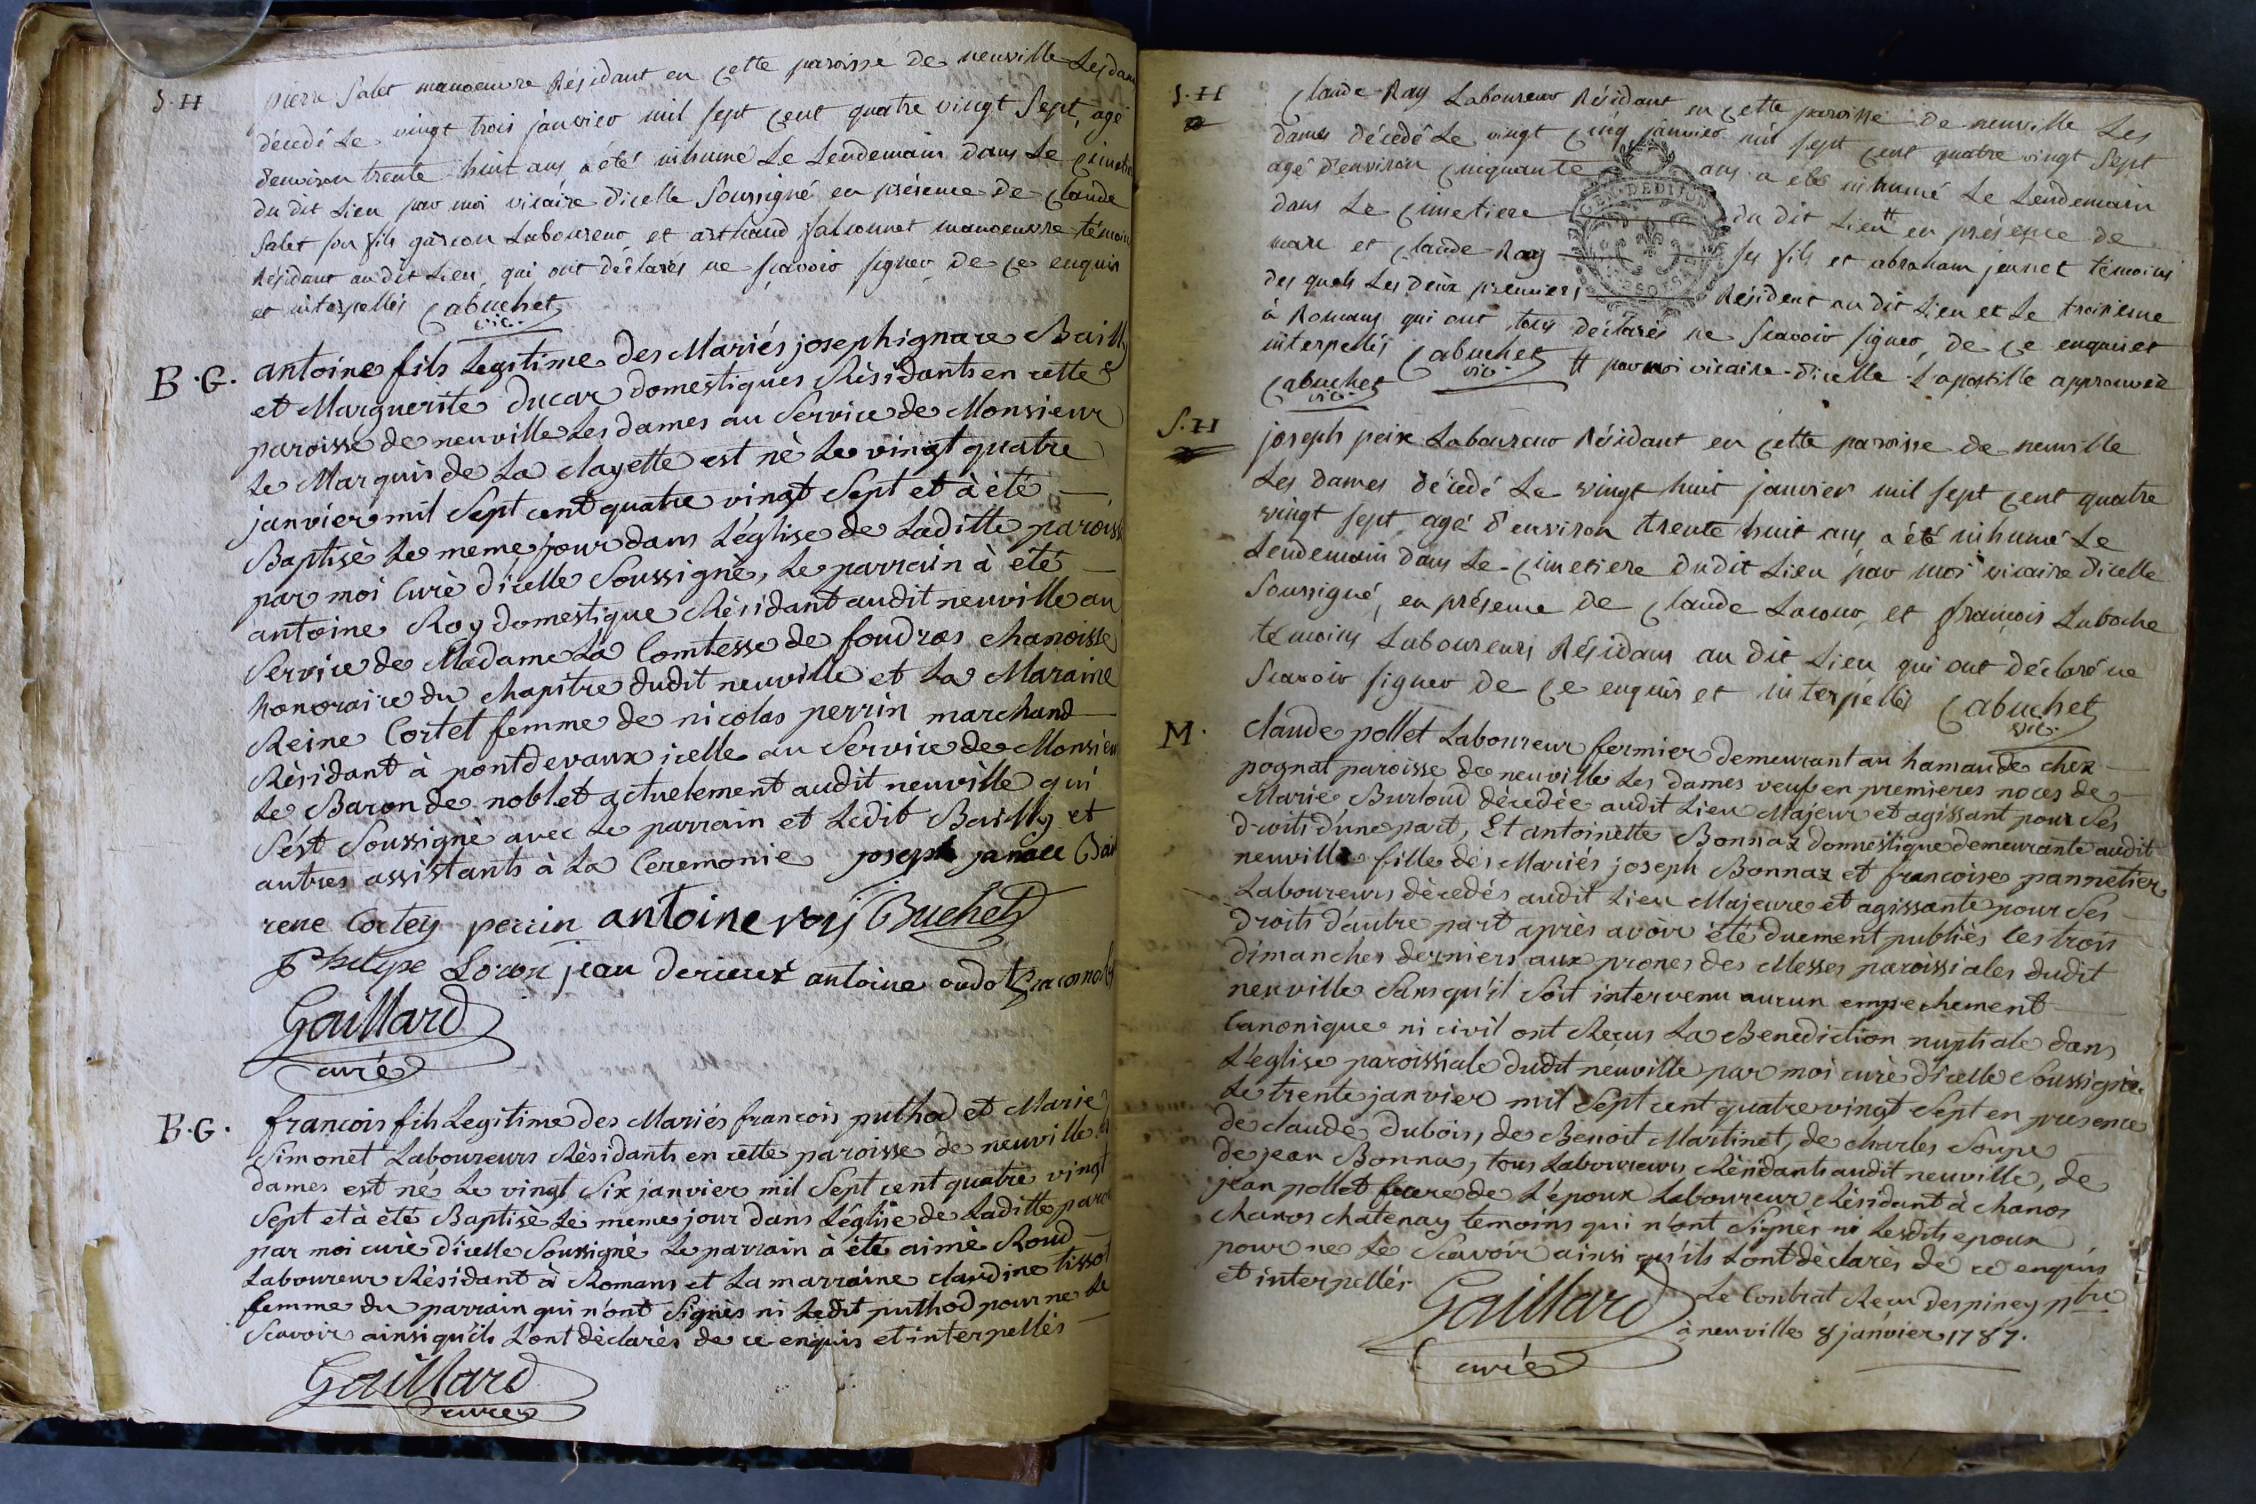 S. H
pierre Salet manoeuvre Résidant en cette paroisse de neuville Les dam
décédé Le vingt trois janvier mil sept cent quatre vingt Sept, agé
denviron trente huit ans a été inhumé Le Lendemain dans Le cimetie
du dit Lieu par moi vicaire dicelle Soussigné en présence de Claude
Salet son fils garcon Laboureur et arthaud falconnet manoeuvre témoin
Résidant au dit Lieu qui ont déclarés ne sçavoir signer de ce enquis
et interpellés Cabuchet
vic.
B. G.
antoine fils Legitime des Mariés joseph ignace Bailly
et Marguerite ducar domestiques Rèsidants en cette
paroisse de neuville Les dames au Service de Monsieur
Le Marquis de La clayette est nè Le vingt quatre
janvier mil Sept cent quatre vingt Sept et à été
Baptisè Le meme jour dans L'église de Laditte paroiss
par moi Curè d'icelle Soussigné, Le parrain à été
antoine Roy domestique Rèsidant audit neuville au
Service de Madame La Comtesse de foudras chanoisse
honoraire du chapitre dudit neuville et La Maraine
Reine Cortet femme de nicolas perrin marchand
Rèsidant à pontdevaux icelle au Service de Monsieu
Le Baron de noblet actuelement audit neuville qui
S'ést Soussignè avec Le parrain et Ledit Bailly et
autres assistants à La Ceremonie joseph jgnace Bai
rene Cortey perrin antoine roy Buchet
Philipe Loron jean derieux antoine oudot
Gaillard
curé
B. G.
francois fils Legitime des Mariés francois puthod et Marie
Simonet Laboureurs Rèsidants en cette paroisse de neuville Les
dames est né Le vingt Six janvier mil Sept cent quatre vingt
Sept et à été Baptisè Le meme jour dans L'église de Laditte paro
par moi curè d'icelle Soussignè Le parrain à été aimè Roud
Laboureur Rèsidant à Romans et La marraine claudine tissot
femme du parrain qui n'ont Signès ni Ledit puthod pour ne Le
Scavoir ainsi qu'ils L'ont dèclarès de ce enquis et interpellés
Gaillard
curé
S. H
Claude Ray Laboureur Résidant en cette paroisse de neuville Les
dames décédé Le vingt cinq janvier mil sept cent quatre vingt Sept
agé d'environ cinquante ans a été inhumé Le Lendemain
dans Le cimetiere du dit Lieu # en présence de
marc et Claude Ray ses fils et abraham jeunet témoins
des quels Les deux premiers Résident au dit Lieu et Le troisieme
à Romans qui ont tous déclarés ne Scavoir signer de ce enquis et
interpellés Cabuchet vic. # par moi vicaire dicelle L'apostille approuvée
Cabuchet
vic.
GEN. DE DIJON
S. H
joseph peix Laboureur Résidant en cette paroisse de neuville
Les dames décédé Le vingt huit janvier mil sept cent quatre
vingt sept agé d'environ trente huit ans a été inhumé Le
Lendemain dans Le cimetiere du dit Lieu par moi vicaire dicelle
Soussigné, en présence de Claude Lacour et françois Laboche
témoins Laboureurs Résidans au dit Lieu qui ont déclaré ne
Scavoir signer de ce enquis et interpellés Cabuchet
vic.
M.
Claude pollet Laboureur fermier demeurant au hamau de chez
pognat paroisse de neuville Les dames veuf en premieres noces de
Marie Burloud dècedée audit Lieu Majeur et agissant pour Ses
droits d'une part, Et antoinette Bonnaz domestique demeurante audit
neuville fille des Mariés joseph Bonnaz et francoise pannetier
Laboureurs dècedés audit Lieu Majeure et agissante pour Ses
droits d'autre part après avoir été duement publiés Les trois
dimanches derniers aux prones des Messes paroissiales dudit
neuville Sans qu'il Soit intervenu aucun empechement
Canonique ni civil ont Recus La Benediction nuptiale dans
L'église paroissiale dudit neuville par moi curè d'icelle Soussigné
Le trente janvier mil Sept cent quatre vingt Sept en presence
de claude dubois, de Benoit Martinet, de charles Soupe
de jean Bonna, tous Laboureurs Rèsidants audit neuville, de
jean pollet frere de L'époux Laboureur Rèsidant à chanos
chanos chatenay temoins qui n'ont Signés ni Lesdits epoux
pour ne Le Scavoir ainsi qu'ils L'ont dèclarès de ce enquis
et interpellés
Gaillard
curé
Le Contrat Recu despiney ptre
à neuville 8 janvier 1787.